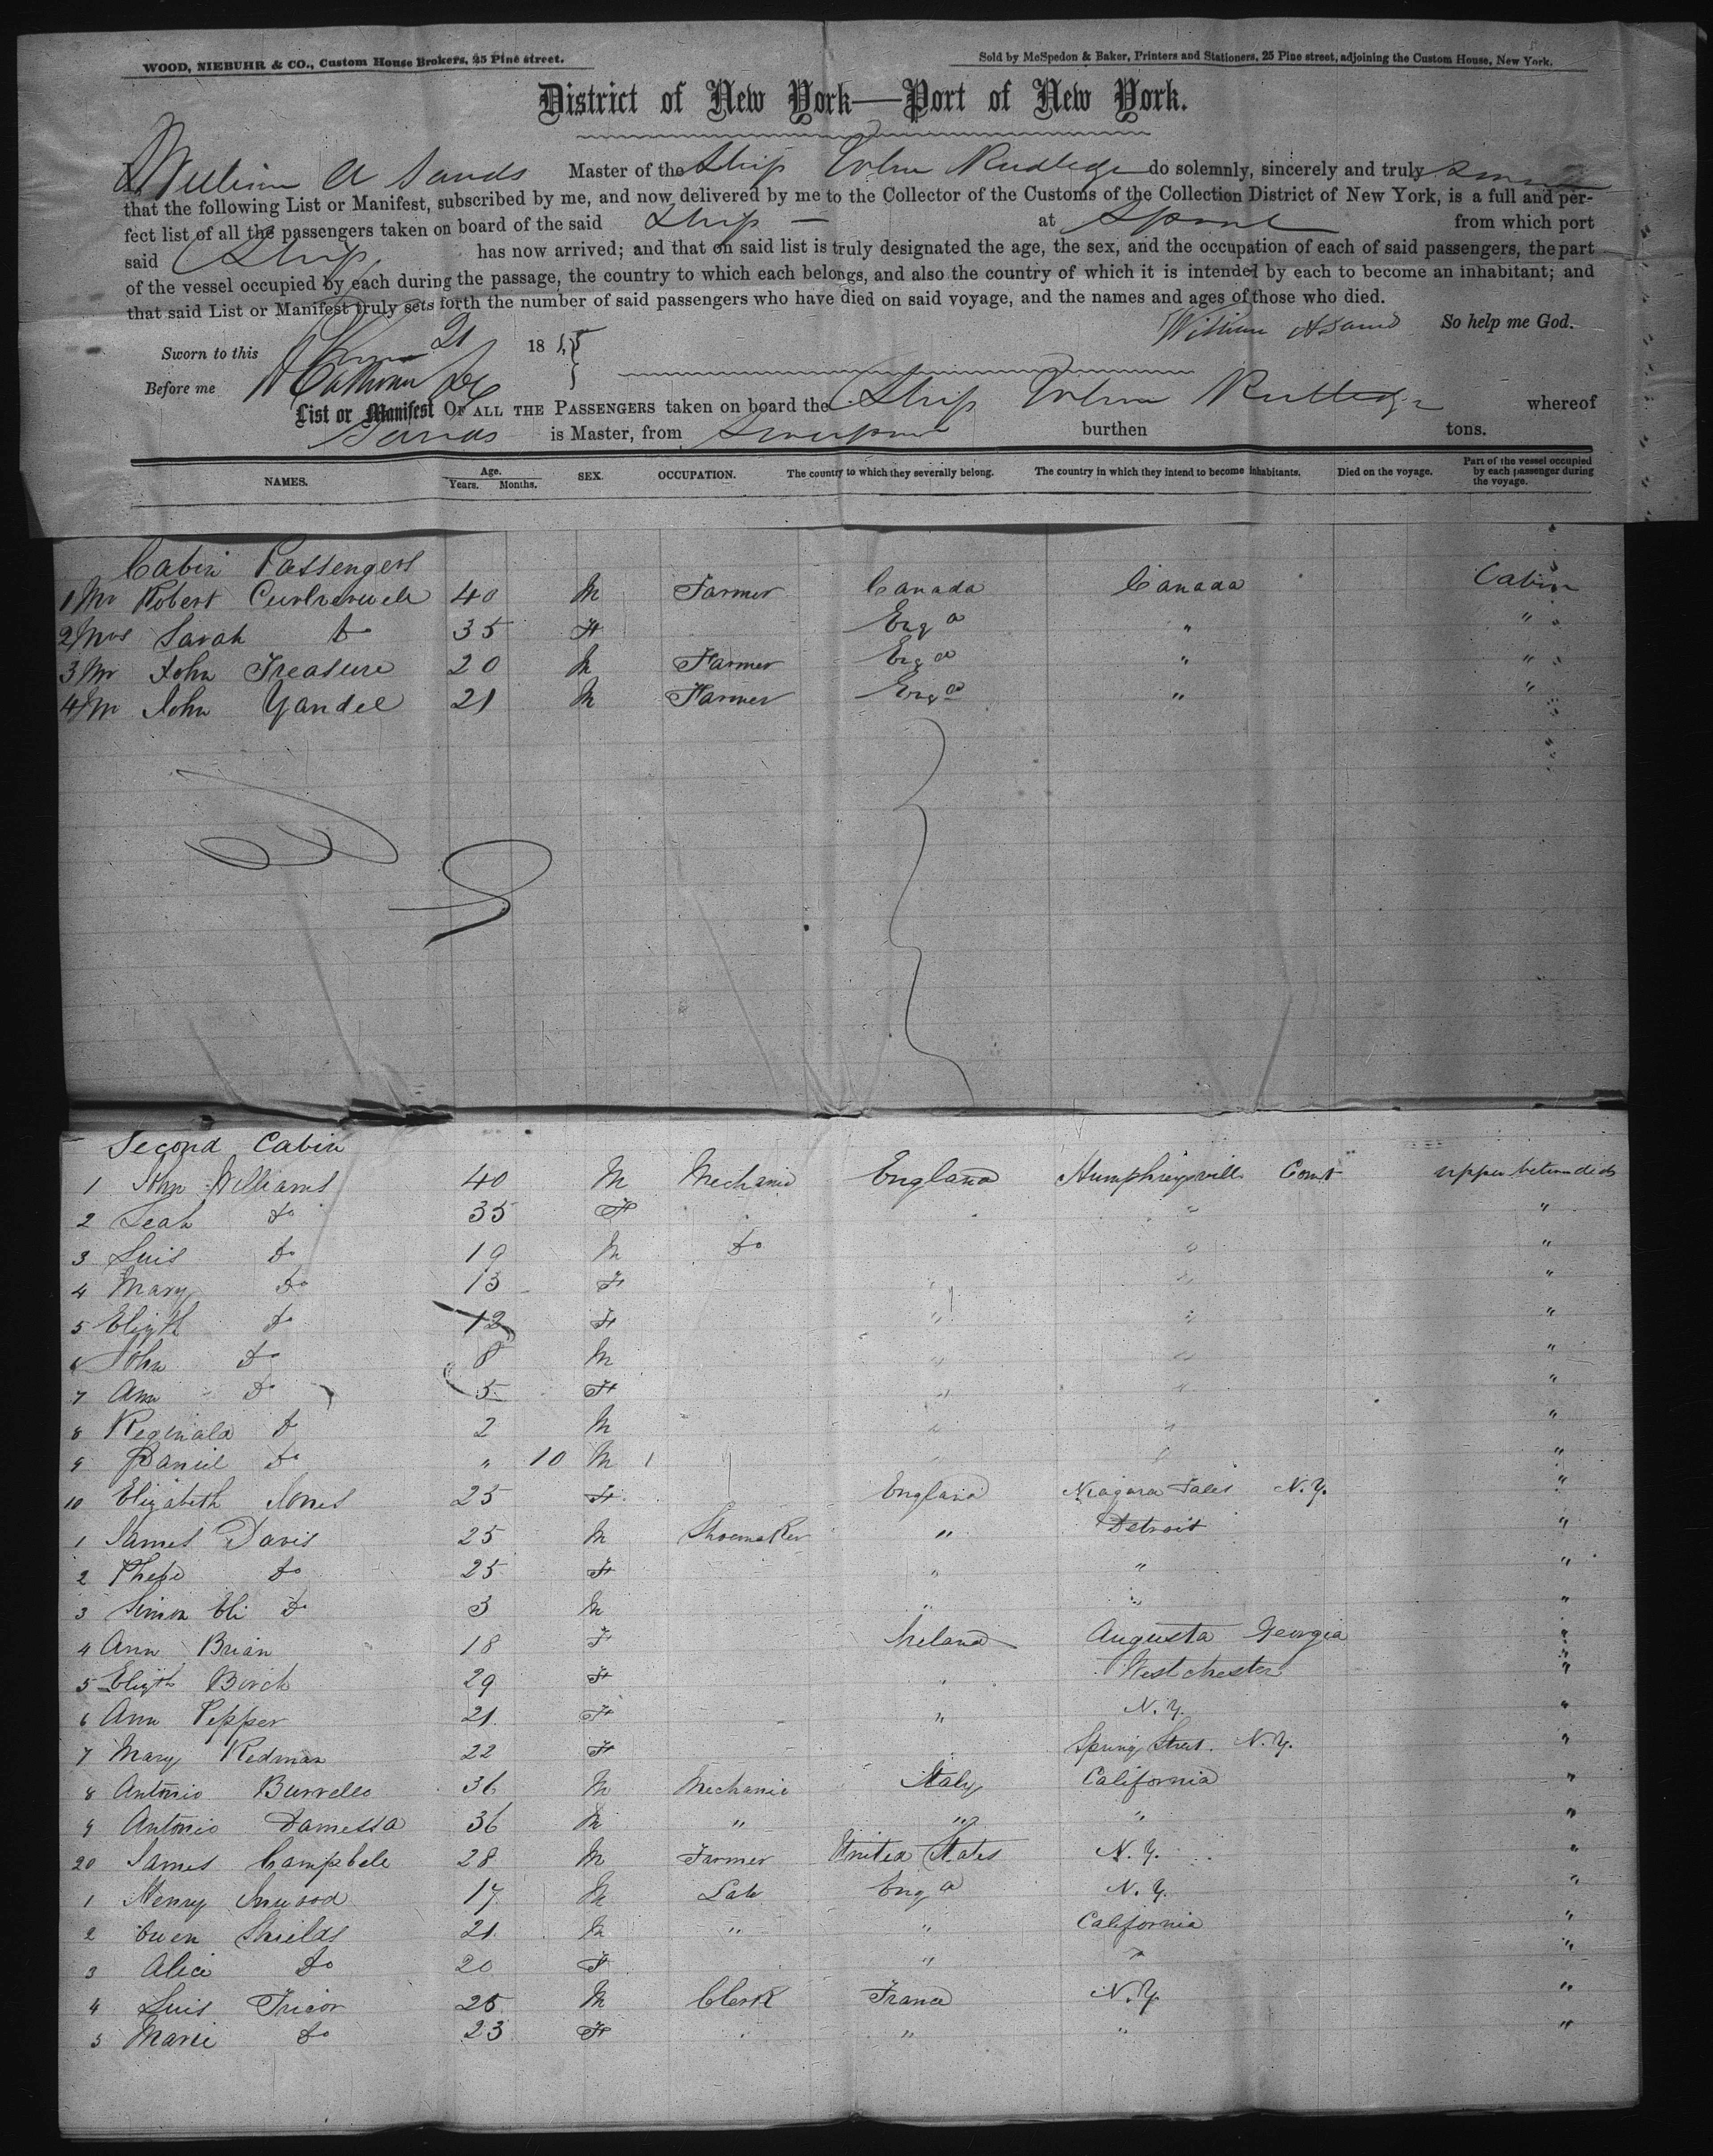 WOOD, NIEBUHR & CO., Custom House Brokers, 25 Pine street.
Sold by McSpedon & Baker, Printers and Stationers, 25 Pine street, adjoining the Custom House, New York.
District of New York—Port of New York.
I, William A Sands Master of the Ship John Rutledge do solemnly, sincerely and truly swear
that the following List or Manifest, subscribed by me, and now delivered by me to the Collector of the Customs of the Collection District of New York, is a full and per-
fect list of all the passengers taken on board of the said Ship — at from which port
said Ship has now arrived; and that on said list is truly designated the age, the sex, and the occupation of each of said passengers, the part
of the vessel occupied by each during the passage, the country to which each belongs, and also the country of which it is intended by each to become an inhabitant; and
that said List or Manifest truly sets forth the number of said passengers who have died on said voyage, and the names and ages of those who died.
William A Sands So help me God.
Sworn to this 21 1855
Before me
List or Manifest OF ALL THE PASSENGERS taken on board the Ship John Rutledge whereof
Sands is Master, from Liverpool burthen tons.
NAMES. Age. Years. Months. SEX. OCCUPATION. The country to which they severally belong. The country in which they intend to become inhabitants. Died on the voyage. Part of the vessel occupied by each passenger during the voyage.
Cabin Passengers
1 Mr Robert 40 M Farmer Canada Canada Cabin
2 Mrs Sarah Do 35 F Eng d " "
3 Mr John Treasure 20 M Farmer Eng d " "
4 Mr John Yandel 21 M Farmer Eng d " "
Second Cabin
1 John Williams 40 M Mechanic England Humphreysville Connt upper between decks
2 Leah Do 35 F " "
3 Luis Do 19 M Do " "
4 Mary Do 13 F " " "
5 Elizth Do 12 F " " "
6 John Do 8 M " " "
7 Ann Do 5 F " " "
8 Reginald Do 2 M " " "
9 Daniel Do " 10 M 1 " " "
10 Elizabeth Jones 25 F England Niagara Falls N.Y. "
1 James Davis 25 M Shoemaker " Detroit "
2 Phebe Do 25 F " " "
3 Simon Eli Do 3 M " " "
4 Ann Brian 18 F Ireland Augusta Georgia "
5 Elizth Birch 29 F " Westchester "
6 Ann Pepper 21 F " N.Y. "
7 Mary Redman 22 F Spring Street. N.Y. "
8 Antonio Burrello 36 M Mechanic Italy California "
9 Antonio Damessa 36 M " " " "
20 James Campbell 28 M Farmer United States N.Y. "
1 Henry Inwood 17 M Lab Eng d N.Y. "
2 Owen Shields 21 M " " California "
3 Alice Do 20 F " " "
4 Luis Tricor 25 M Clerk France N.Y. "
5 Marie Do 23 F " " "